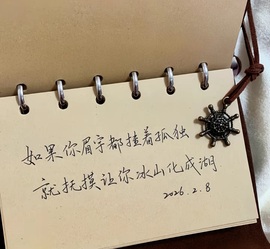 如果你眉宇都揸着孤独
就抚摸让你冰山化成湖
2026.2.8